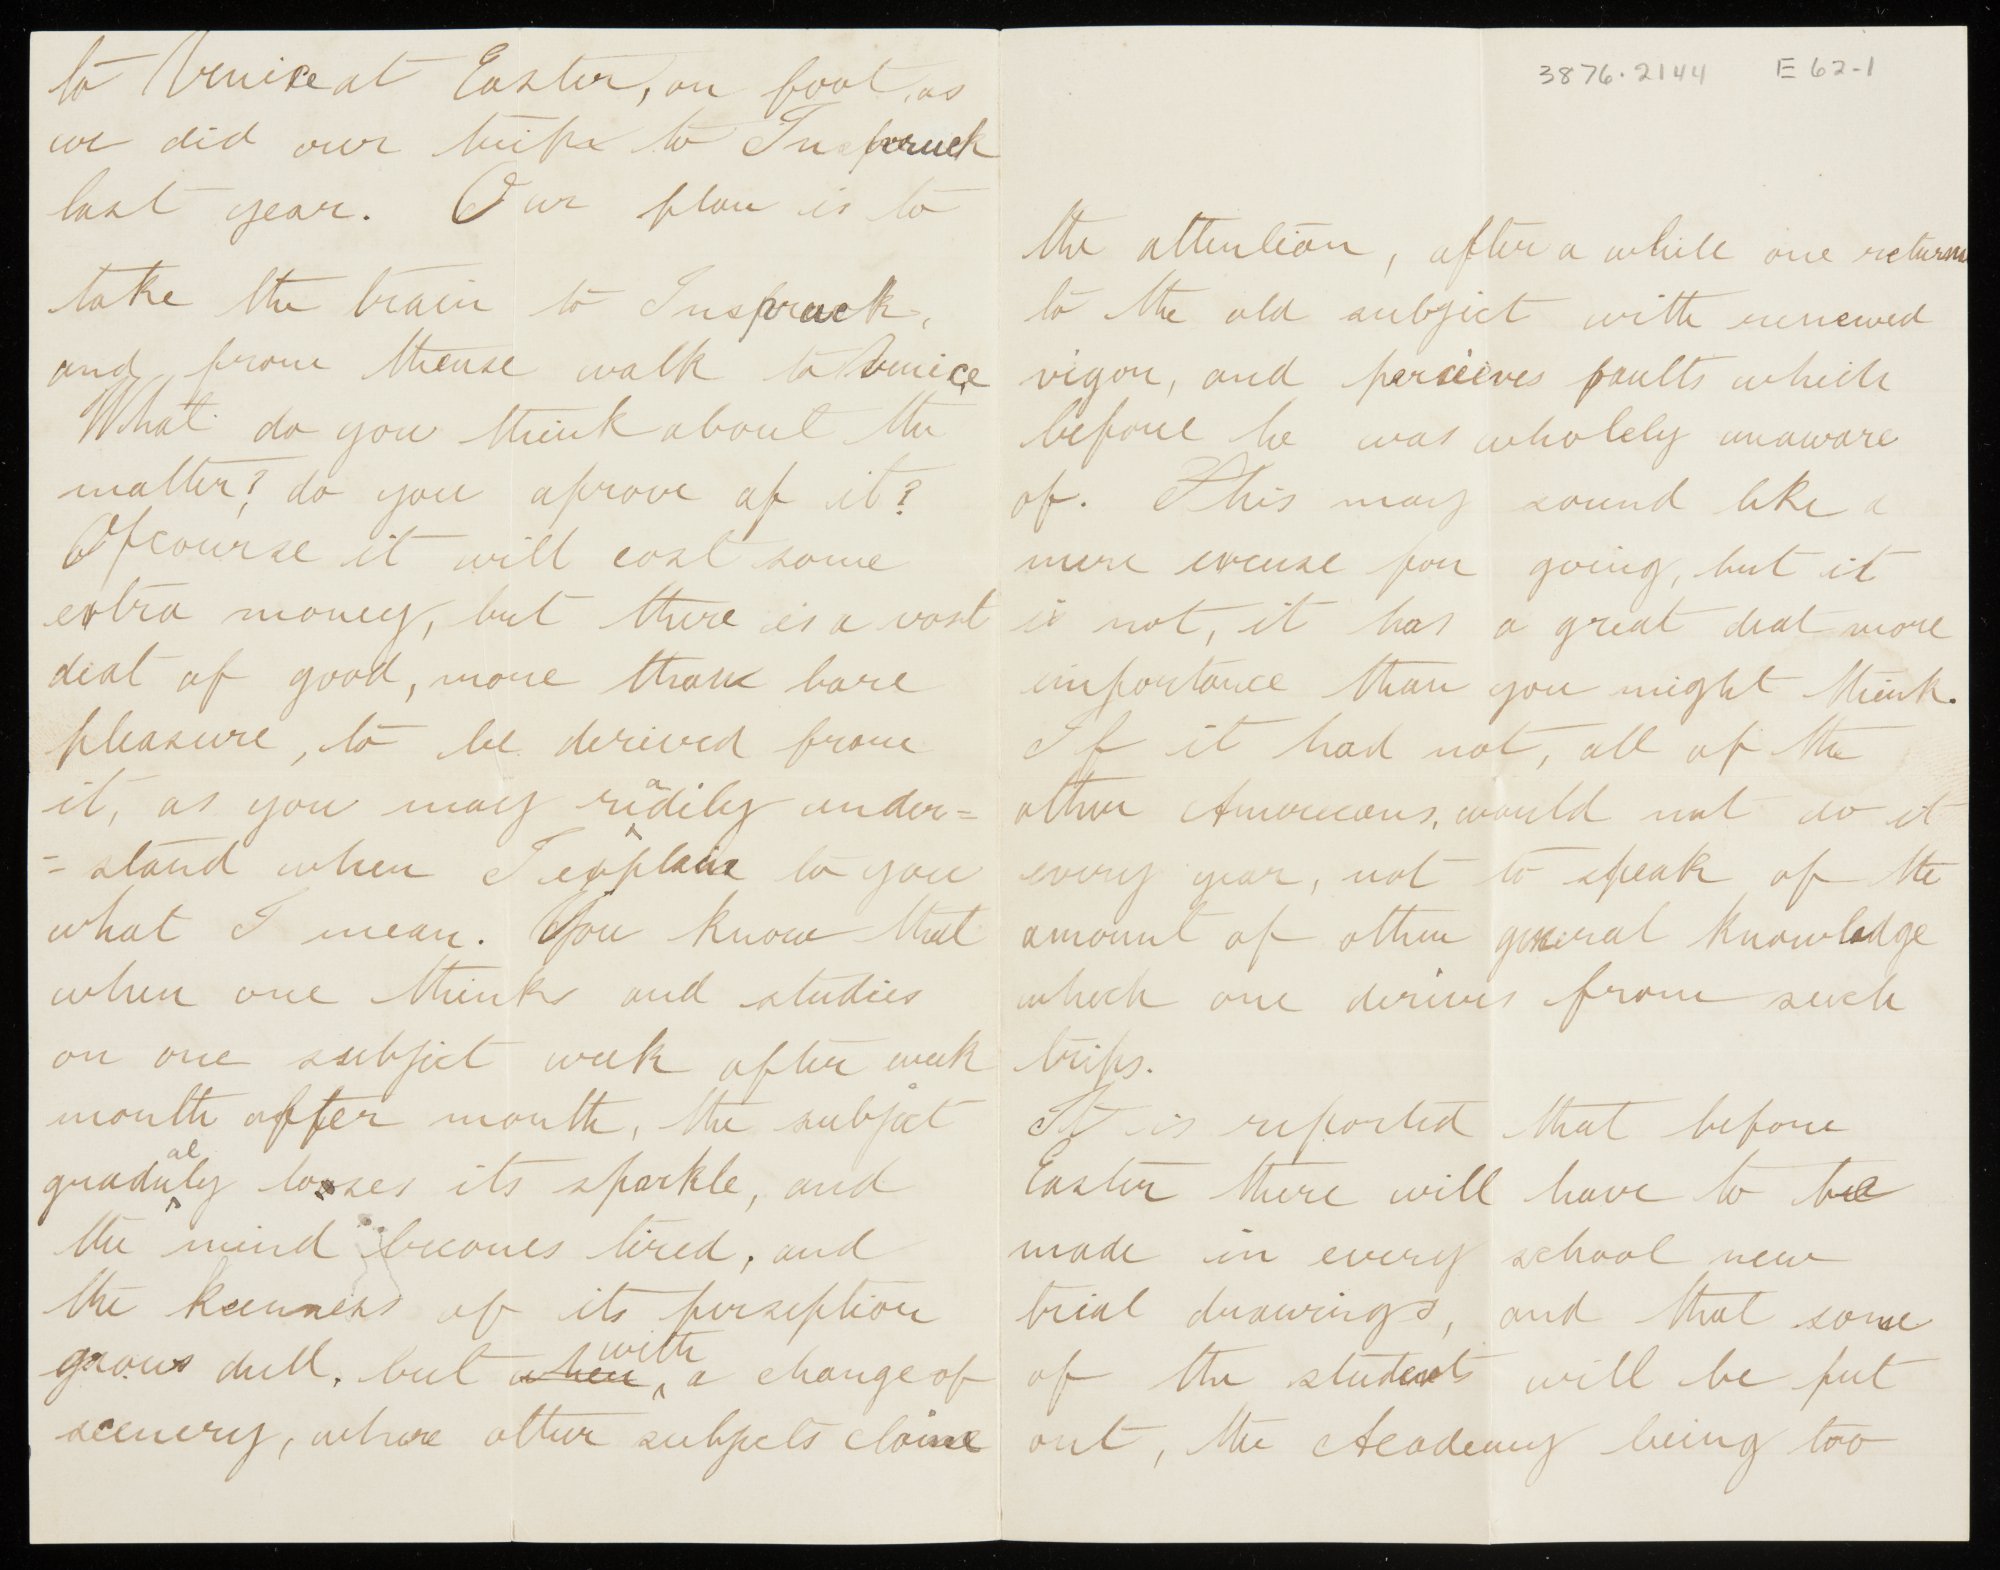 to Venice at Easter, on foot, as
we did our trips to Inspruck
last year. Our plan is to
take the train to Inspruck,
and from thense walk to Venice
What do you think about the
matter? do you aprove of it?
Ofcourse it will cost some
extra money, but there is a vast
deal of good, more than bare
pleasure, to be derived from
it, as you may readily under=
=stand when I explain to you
what I mean. You know that
when one thinks and studies
on one subject week after week
month after month, the subject
gradualy looses its sparkle, and
the mind becomes tired, and
the keenness of its perseption
grows dull, but when with a change of
scenery, where other subjects claime
3876.2144 E 62-1
the attention, after a while one returns
to the old subject with renewed
vigor, and perceives faults which
before he was wholely unaware
of. This may sound like a
mere excuse for going, but it
is not, it has a great deal more
importance than you might think.
If it had not, all of the
other Americans, would not do it
every year, not to speak of the
amount of other general knowladge
which one derives from such
trips.
It is reported that before
Easter there will have to be
made in every school new
trial drawings, and that some
of the students will be put
out, the Academy being too